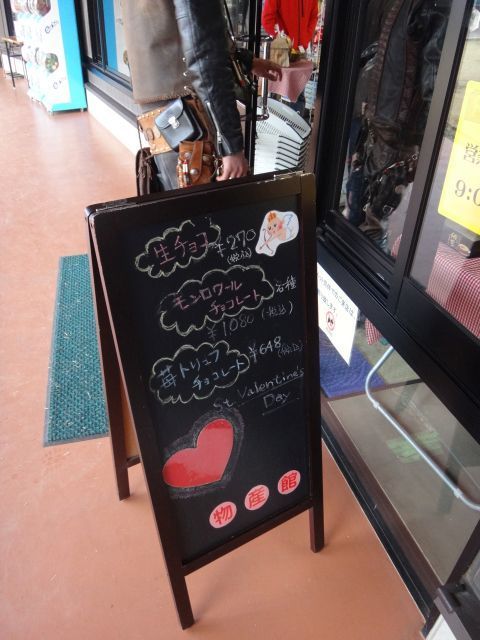 生チョコ ¥270
(税込)
モンロワール
チョコレート 各種
¥1080 (税込)
苺トリュフ ¥648
チョコレート (税込)
St. Valentine's
Day
物産館
営
9:0